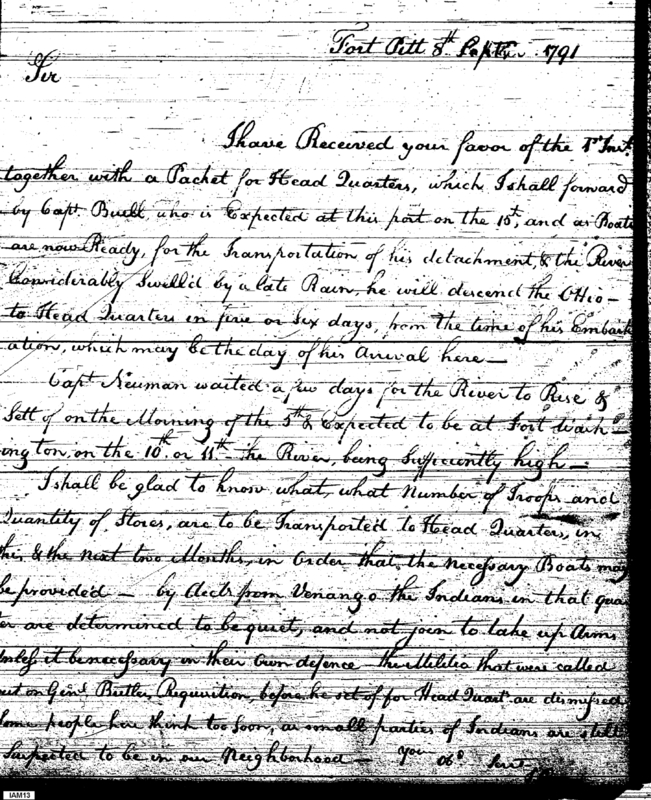 Fort Pitt 8th Septr 1791
Sir
I have Received your favor of the 1st Inst.
together with a Packet for Head Quarters, which I shall forward
by Capt. Buell, who is Expected at this post on the 10th, and as Boats
are now Ready, for the Transportation of his detachment, & the River
Considerably Swell'd by a late Rain, he will descend the Ohio —
to Head Quarters in five or Six days, from the time of his Embark
ation, which may be the day of his Arrival here —
Capt Neuman waited a few days for the River to Rise &
Sett of on the Morning of the 5th & Expected to be at Fort Wash—
ington, on the 10th or 11th the River, being Sufficiently high —
I shall be glad to know what, what Number of Troops and
Quantity of Stores, are to be Transported to Head Quarters, in
this & the Next two Months, in Order that, the necessary Boats may
be provided — by Accts from Venango the Indians in that quar
ter are determined to be quiet, and not join to take up Arms
Unless it be necessary in their Own defence the Militia that were called
out on Genl. Butlers Requisition, before he set of for Head Quarts are dismissed
Some people here think too Soon, as small parties of Indians are still
Suspected to be in our Neighborhood — Your Obd Servt
IAM13